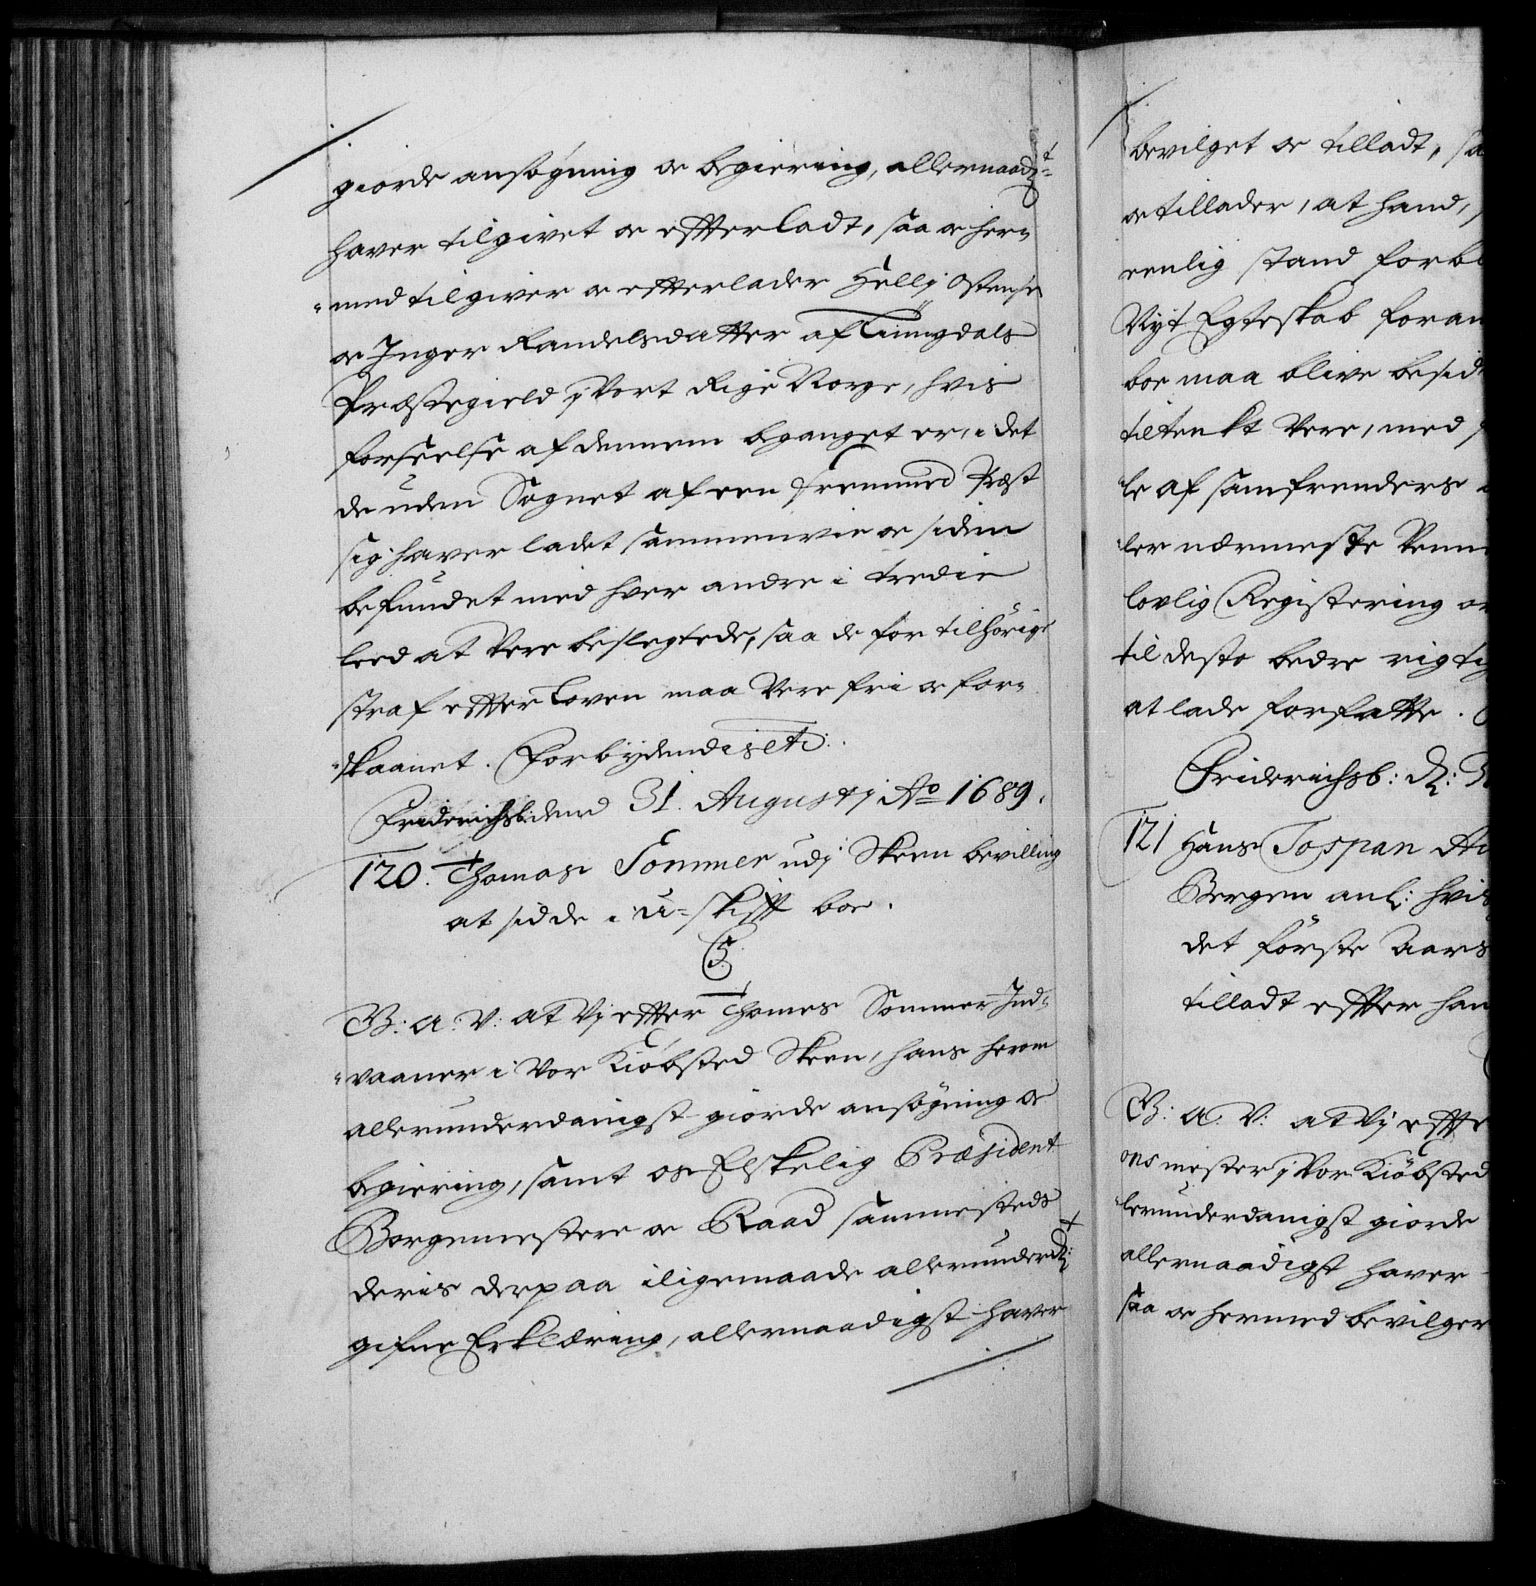 giorde ansøgning oc begiering, allernaadt=
haver tilgivet oc effterladt, saa oc her=
=med tilgiver oc effterlader Hellj Ostensø
oc Inger Randelsdatter af Tinngdals
Præstegield j Vort Rige Norge, hvis
forseelse af dennem beganget er, i det
de uden Sognet af een fremmed Præst
sig haver ladet sammenvie oc siden
befundet med hver andre i tredie
leed at Vere beslegtede, saa de for tilhörige
straf effter Loven maa Vere fri oc for=
=skaanet. Forbydendis etc:
Friderichsb: dend 31. Augustj Ao 1689.
120. Thomas Sommer udj Skeen bevilling
at sidde i U=skifft boe.
C5
G: A: V: at Vj effter Thomes Sommer Ind=
=vaaner i Vor Kiøbsted Skeen, hans herom
allerunderdanigst giorde ansøgning oc
begiering, samt os Elskelig Præsident
Borgemestere oc Raad sammesteds
deris derpaa iligemaade allerunderdt:
gifne Erklæring, allernaadigst haver
bevilget oc tilladt, sa
oc tillader, at hand,
eenlig stand forbl
Nyt Egteskab foran
boe maa blive besid
tiltenkt Vere, med
le af samfrenders
ler nærmeste Venn
lovlig Registering oc
til desto bedre rigtig
at lade forfatte.
Friderichsb: d: 3
121 Hans Jospan
Bergen anl: hvis
det förste Aars
tilladt effter han
G: A: V: at Vj effte
ons mester j Vor Kiøbsted
lerunderdanigst giorde
allernaadigst haver
saa oc hermed bevilger